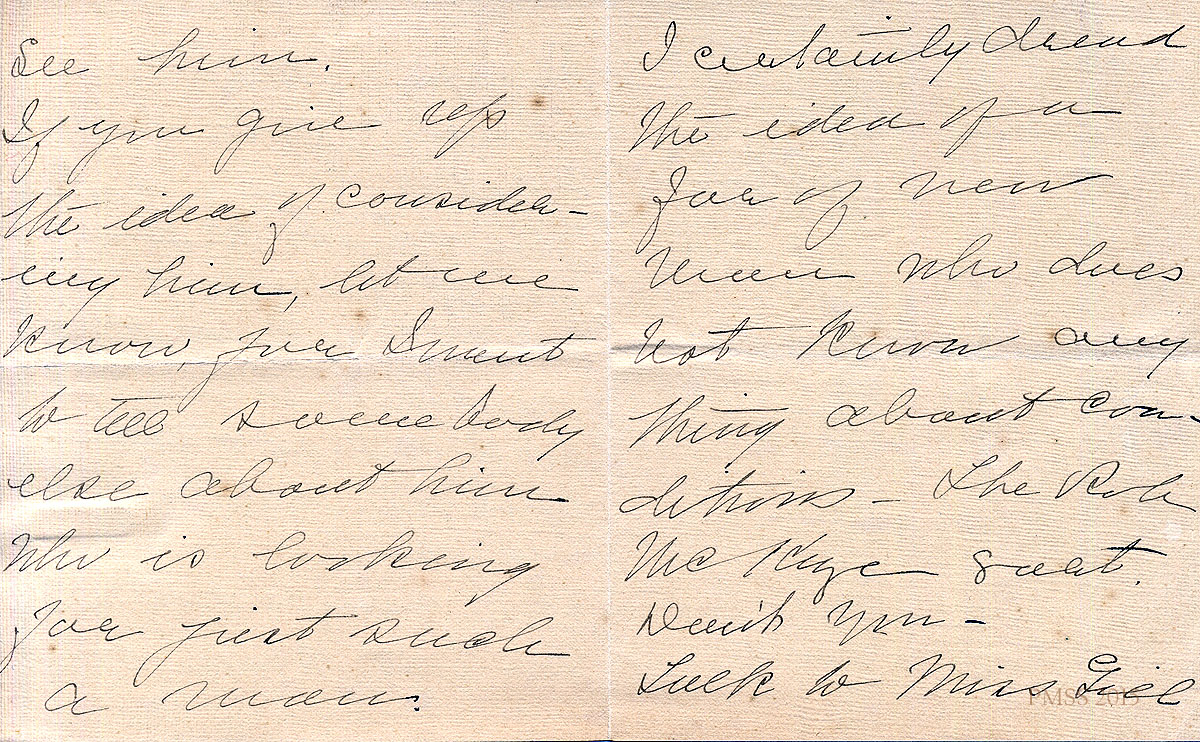 See him.
If you give up
the idea of consider-
ing him, let me
know, for I want
to tell somebody
else about him
who is looking
for just such
a man.
I certainly dread
the idea of a
of new
men who does
not know any
thing about con-
ditions - The Rob
Mc sort.
Don't you -
Luck to Miss Gill
PMSS 2015